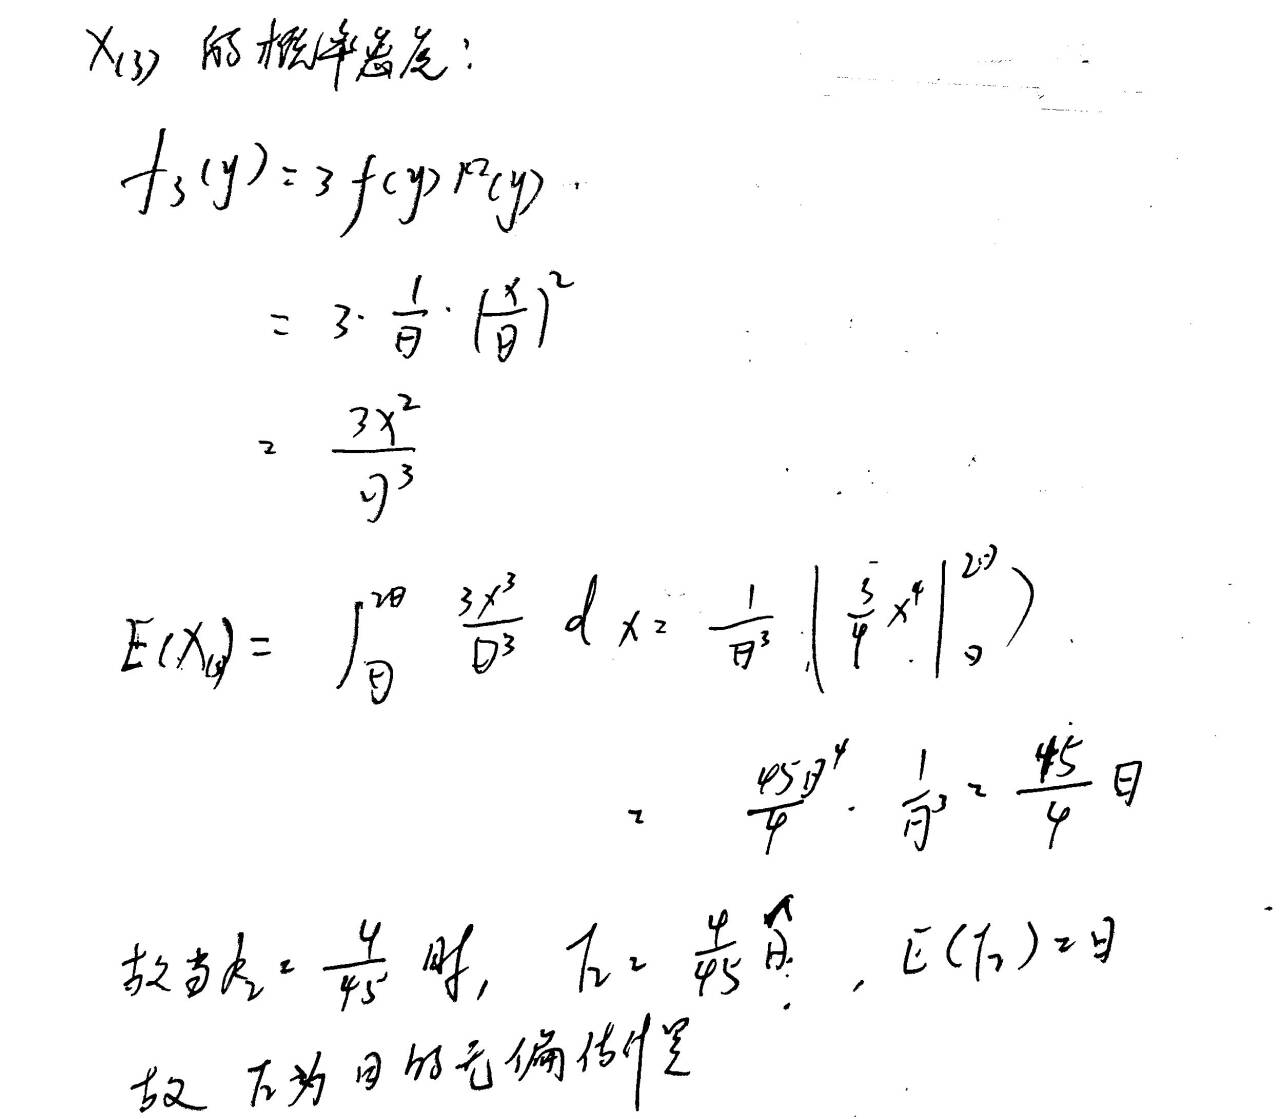 X₍₃₎ 的概率密度：
f₃(y) = 3 f(y) F²(y)
= 3 · 1/θ · (x/θ)²
= 3x²/θ³
E(X₍₃₎) = ∫_θ^{2θ} 3x³/θ³ dx = 1/θ³ · (3/4 x⁴ |_θ^{2θ})
= 45θ⁴/4 · 1/θ³ = 45/4 θ
故当 k₂ = 4/45 时, T₂ = 4/45 θ̂, E(T₂) = θ
故 T₂为 θ 的无偏估计量